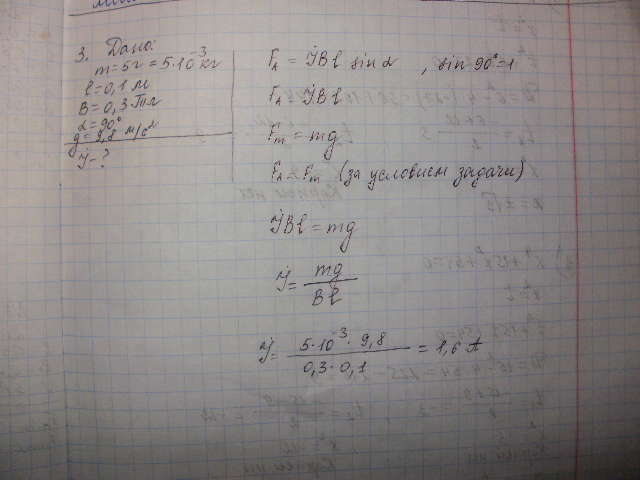 3. Дано:
m = 5г = 5·10⁻³ кг
l = 0,1 м
B = 0,3 Тл
α = 90°
g = 9,8 м/с²
I - ?
Fₐ = IBl sin α , sin 90° = 1
Fₐ = IBl
Fₘ = mg
Fₐ = Fₘ (за условием задачи)
IBl = mg
I = mg / Bl
I = 5·10⁻³ · 9,8 / 0,3 · 0,1 = 1,6 А